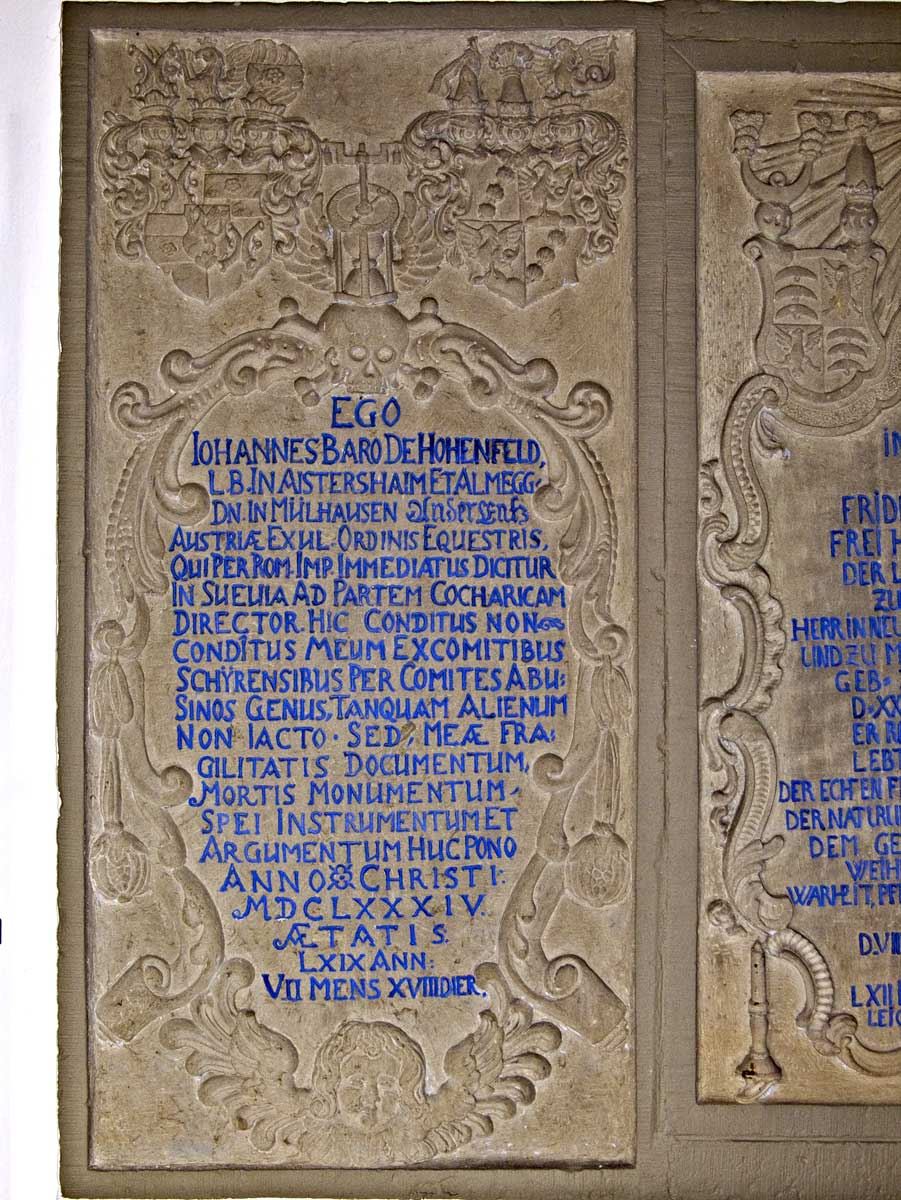 EGO
IOHANNES BARO DE HOHENFELD,
L.B. IN AISTERSHAIM ET ALMEGG-
DN. IN MÜLHAUSEN
AUSTRIÆ EXUL. ORDINIS EQUESTRIS,
QUI PER ROM. IMP. IMMEDIATUS DICITUR
IN SUEUIA AD PARTEM COCHARICAM
DIRECTOR. HIC CONDITUS NON-
CONDITUS MEUM EXCOMITIBUS
SCHŸRENSIBUS PER COMITES ABU-
SINOS GENUS, TANQUAM ALIENUM
NON IACTO. SED, MEÆ FRA-
GILITATIS DOCUMENTUM,
MORTIS MONUMENTUM,
SPEI INSTRUMENTUM ET
ARGUMENTUM HUC PONO
ANNO CHRISTI:
MDCLXXXIV.
ÆTATIS.
LXIX ANN:
VII MENS XVIII DIER.
FREI H
DER L
ZU
HERR IN NEU
UND ZU M
GEB:
D. XX
ER R
LEBT
DER ECHTEN FRE
DER NATUR U
DEM GE
WEIH
WARHEIT, PFL
D. VII
LXII I
LEIC